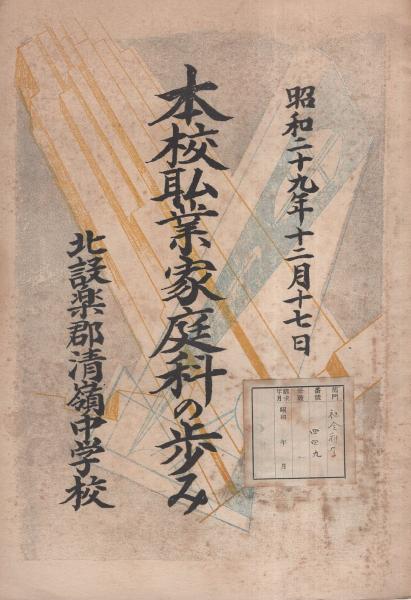 昭和二十九年十二月十七日
本校耺業家庭科の歩み
北設楽郡清嶺中学校
部門
番號
四四九
昭和 年 月